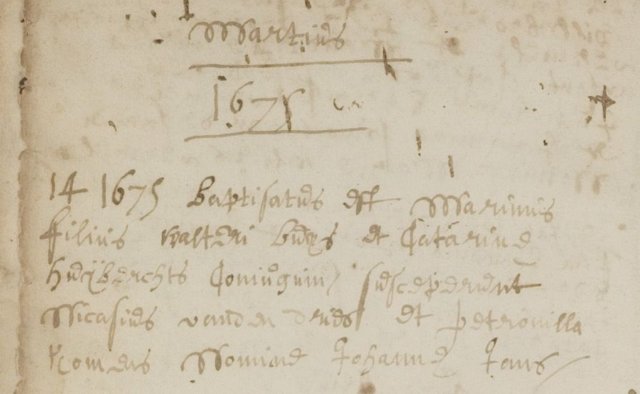 Martius
1675
14 1675 baptisatus est Marinus
filius walteri buijs et Catarine
huijberchts Coniugum susceperunt
Nicasius vanden et petronilla
Nomine Johanne Jans